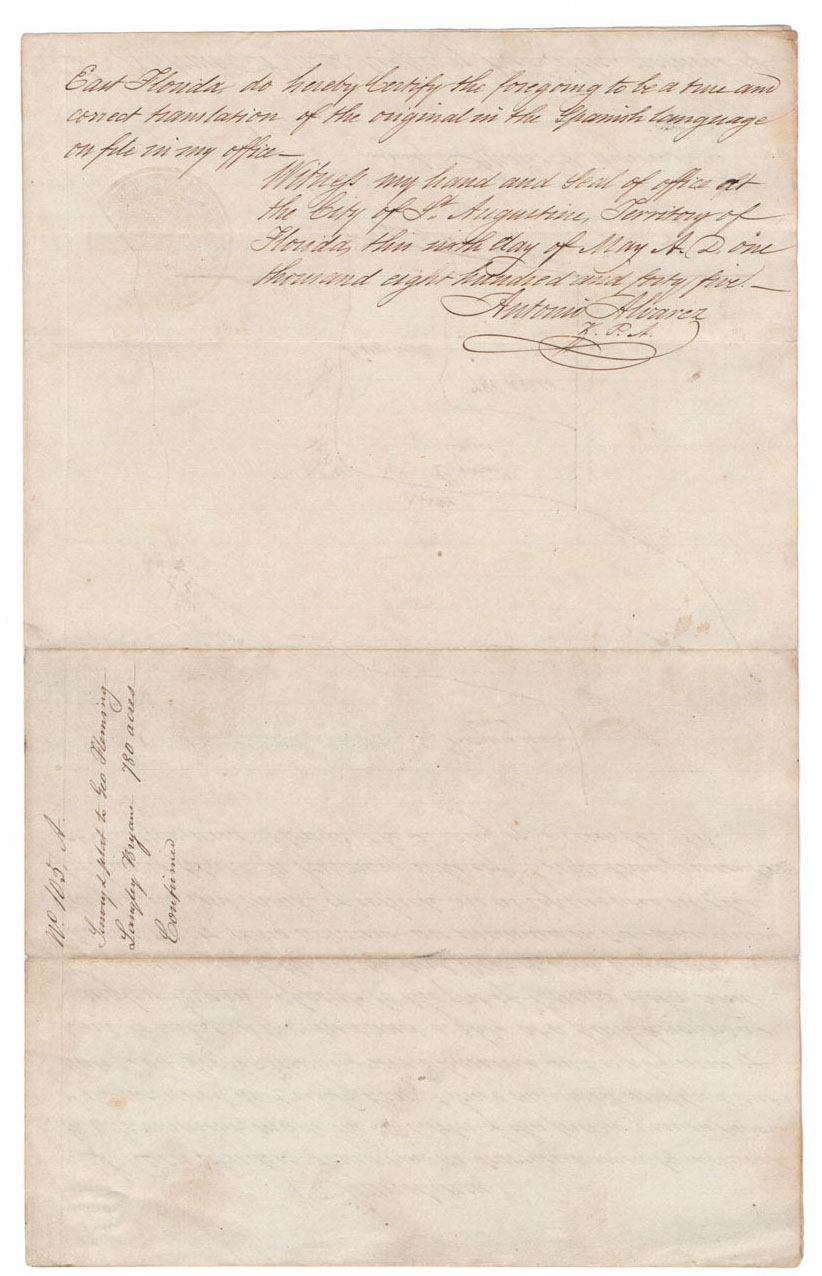 East Florida, do hereby Certify the foregoing to be a true and
correct translation of the original in the Spanish language
on file in my office—
Witness my hand and Seal of office at
the City of St. Augustine, Territory of
Florida, this sixth day of May A. D. one
thousand eight hundred and forty five.—
Antonio Alvarez
K. P. A.
No. 105, A.
Survey & plat to Geo Fleming
Langley Bryant 780 acres
Confirmed